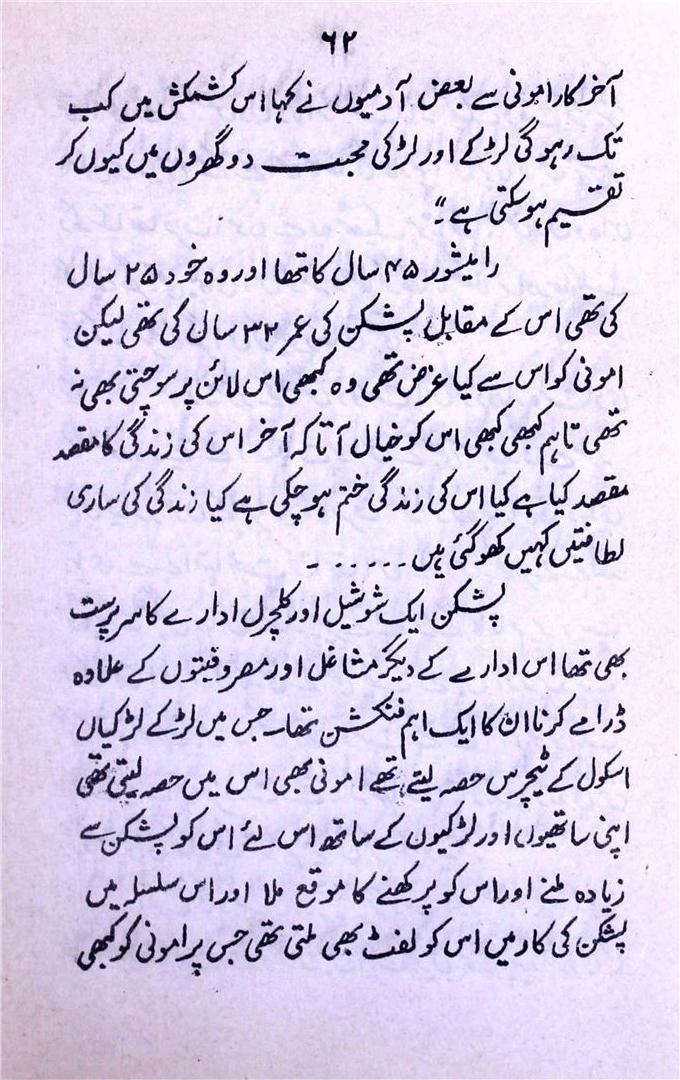 ۶۲
آخر کار امونی سے بعض آدمیوں نے کہا اس کشمکش میں کب
تک رہو گی لڑکے اور لڑکی محبت دو گھروں میں کیوں کر
تقسیم ہو سکتی ہے"
رامیشور ۴۵ سال کا تھا اور وہ خود ۲۵ سال
کی تھی اس کے مقابل پشکن کی عمر ۳۲ سال کی تھی لیکن
امونی کو اس سے کیا غرض تھی وہ کبھی اس لائن پر سوچتی بھی نہ
تھی تاہم کبھی کبھی اس کو خیال آتا کہ آخر اس کی زندگی کا مقصد
مقصد کیا ہے کیا اس کی زندگی ختم ہو چکی ہے کیا زندگی کی ساری
لطافتیں کہیں کھو گئی ہیں ۔۔۔۔۔۔
پشکن ایک شوشیل اور کلچرل ادارے کا سرپرست
بھی تھا اس ادارے کے دیگر مشاغل اور مصروفیتوں کے علاوہ
ڈرامے کرنا ان کا ایک اہم فنکشن تھا۔ جس میں لڑکے لڑکیاں
اسکول کے ٹیچرس حصہ لیتے تھے امونی بھی اس میں حصہ لیتی تھی
اپنی ساتھیوں اور لڑکیوں کے ساتھ اس لئے اس کو پشکن سے
زیادہ ملنے اور اس کو پرکھنے کا موقع ملا اور اس سلسلہ میں
پشکن کی کار میں اس کو لفٹ بھی ملتی تھی جس پر امونی کو کبھی